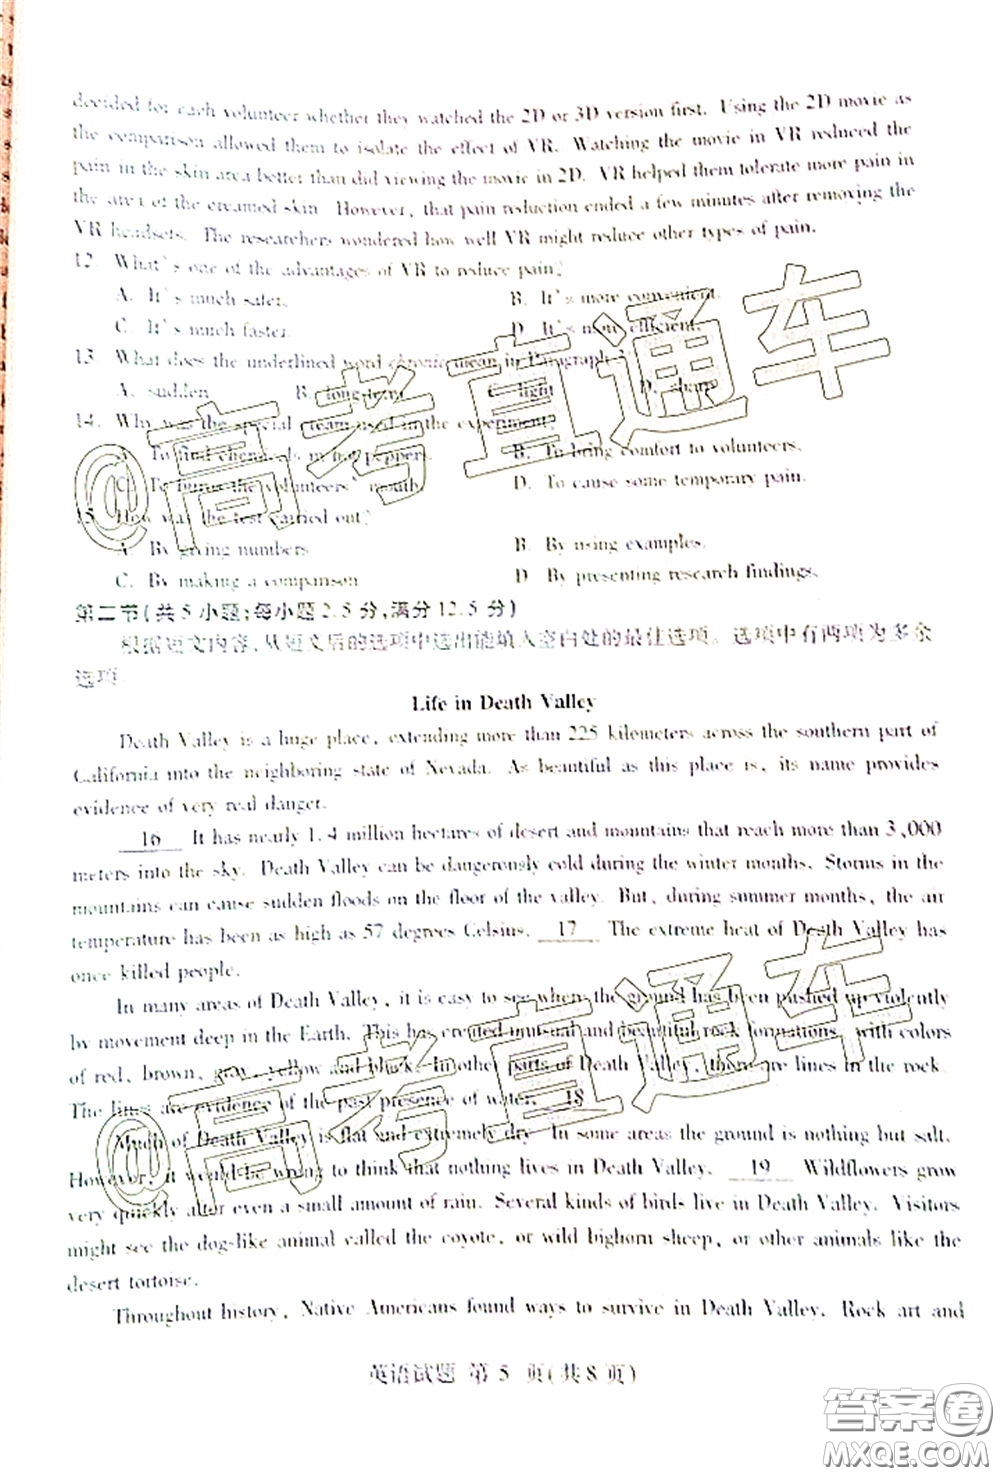 decided for each volunteer whether they watched the 2D or 3D version first. Using the 2D movie as
the comparison allowed them to isolate the effect of VR. Watching the movie in VR reduced the
pain in the skin area better than did viewing the movie in 2D. VR helped them tolerate more pain in
the area of the creamed skin. However, that pain reduction ended a few minutes after removing the
VR headsets. The researchers wondered how well VR might reduce other types of pain.
12. What's one of the advantages of VR to reduce pain?
A. It's much safer. B. It's more convenient.
C. It's much faster. D. It's more efficient.
13. What does the underlined word chronic mean in Paragraph
A. sudden B. long-term C. light D. sharp
14. Why was the special cream used in the experiment?
A. To find chemicals in hot peppers. B. To bring comfort to volunteers.
C. To burn the volunteers' mouth. D. To cause some temporary pain.
15. How was the test carried out?
A. By giving numbers. B. By using examples.
C. By making a comparison. D. By presenting research findings.
第二节(共5小题;每小题2.5分,满分12.5分)
根据短文内容,从短文后的选项中选出能填入空白处的最佳选项。选项中有两项为多余
选项
Life in Death Valley
Death Valley is a huge place, extending more than 225 kilometers across the southern part of
California into the neighboring state of Nevada. As beautiful as this place is, its name provides
evidence of very real danger.
16 It has nearly 1.4 million hectares of desert and mountains that reach more than 3,000
meters into the sky. Death Valley can be dangerously cold during the winter months. Storms in the
mountains can cause sudden floods on the floor of the valley. But, during summer months, the air
temperature has been as high as 57 degrees Celsius. 17 The extreme heat of Death Valley has
once killed people.
In many areas of Death Valley, it is easy to see where the ground has been pushed up violently
by movement deep in the Earth. This has created unusual and beautiful rock formations, with colors
of red, brown, gray, yellow and black. In other parts of Death Valley, there are lines in the rock.
The lines are evidence of the past presence of water. 18
Much of Death Valley is flat and extremely dry. In some areas the ground is nothing but salt.
However, it would be wrong to think that nothing lives in Death Valley. 19 Wildflowers grow
very quickly after even a small amount of rain. Several kinds of birds live in Death Valley. Visitors
might see the dog-like animal called the coyote, or wild bighorn sheep, or other animals like the
desert tortoise.
Throughout history, Native Americans found ways to survive in Death Valley. Rock art and
英语试题 第5页(共8页)
@高考直通车
@高考直通车
答案卷
MXQE.COM